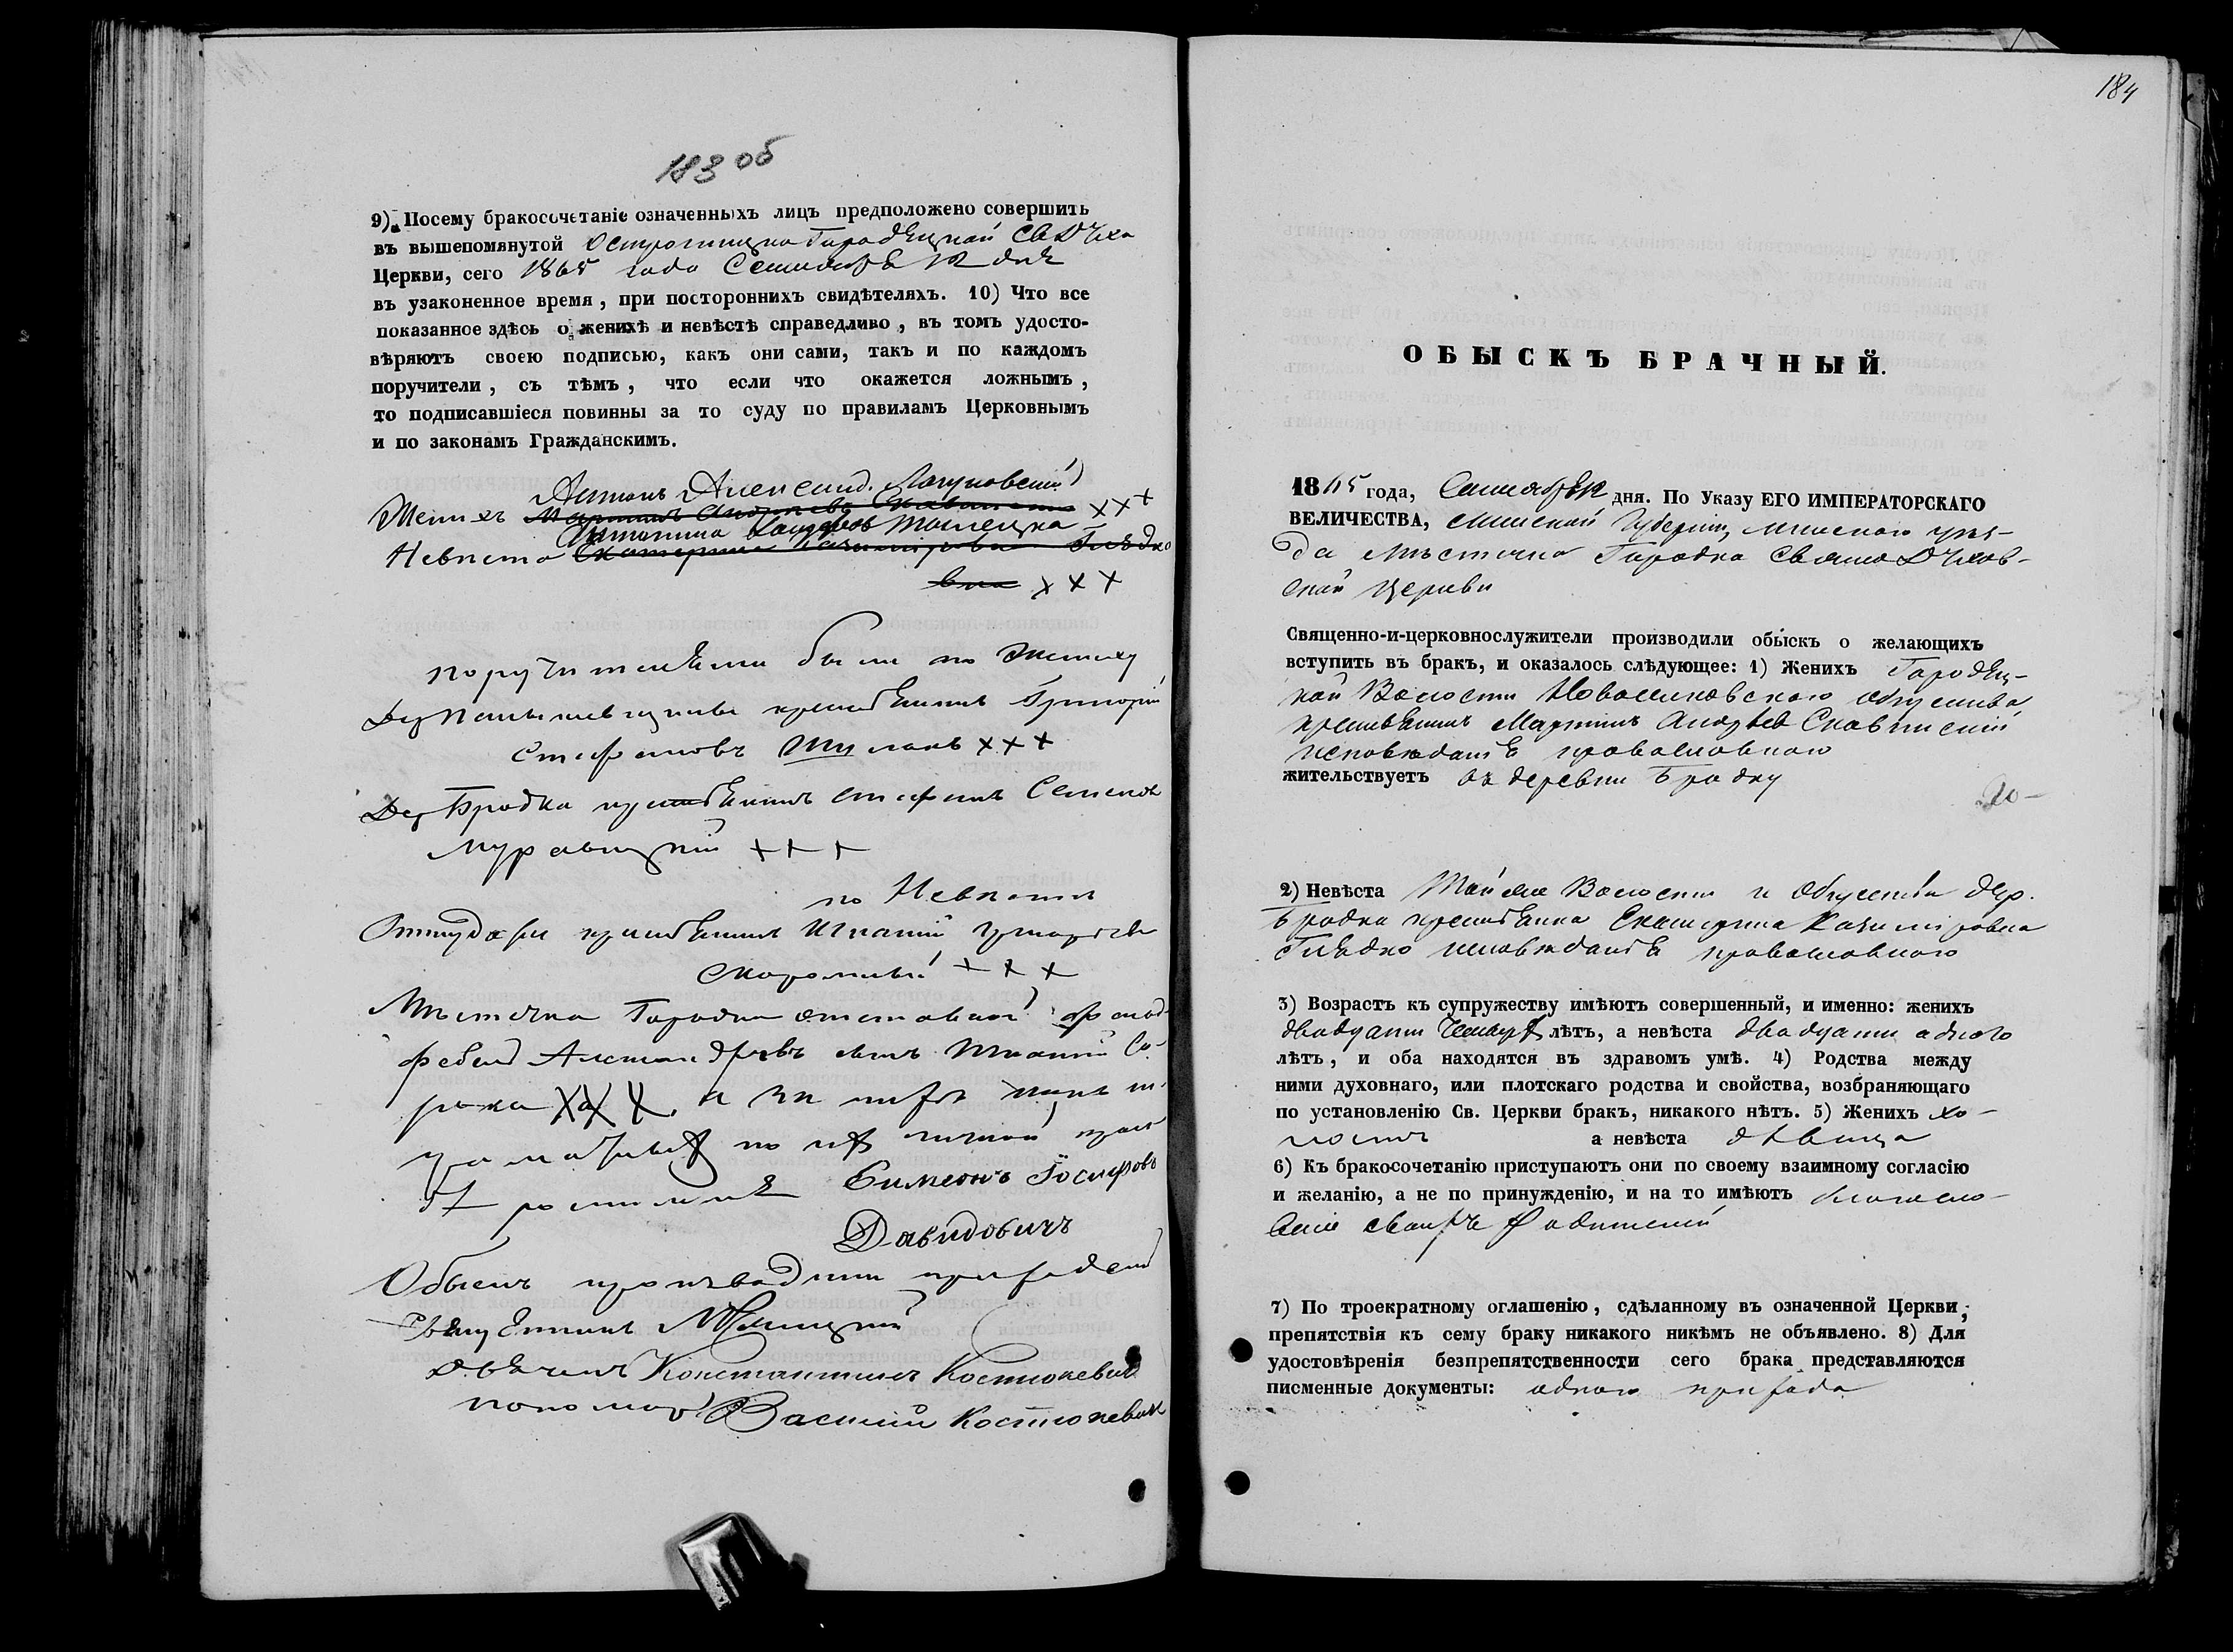 183 об
9) Посему бракосочетаніе означенныхъ лицъ предположено совершить
въ вышепомянутой Острошицкагородецкой Св Дух
Церкви, сего 1865 года Сентября 12 дня
въ узаконенное время, при постороннихъ свидѣтеляхъ. 10) Что все
показанное здѣсь о женихѣ и невѣстѣ справедливо, въ томъ удосто-
вѣряютъ своею подписью, какъ они сами, такъ и по каждомъ
поручители, съ тѣмъ, что если что окажется ложнымъ,
то подписавшіеся повинны за то суду по правиламъ Церковнымъ
и по законамъ Гражданскимъ.
Антонъ Александ.
Женихъ Мартинъ Андреевъ ххх
Антонина
Невѣста Екатерина Казимірова Гнѣдко
вна ххх
поручителями были по Жениху
крестьянинъ Григорій
Стефановъ ххх
Дер Бродка крестьянинъ Стефанъ Семеновъ
Муравицкій ххх
по Невѣстѣ
крестьянинъ Игнатій
ххх
Мѣстечка Городка отставной
фебель Александровъ сынъ Игнатій Со-
рока ххх а за
по ихъ личной прось
бѣ росписался Симеонъ Іосифовъ
Давидовичъ
Обыскъ производили приходской
Священникъ
Дьячекъ Константинъ Костюкевич
пономар Василий Костюкевич
184
ОБЫСКЪ БРАЧНЫЙ.
1865 года, Сентября 12 дня. По Указу ЕГО ИМПЕРАТОРСКАГО
ВЕЛИЧЕСТВА, Минской Губерніи, минскаго уѣз-
да мѣстечка Городка Свято Духов-
ской Церкви
Священно-и-церковнослужители производили обыскъ о желающихъ
вступить въ бракъ, и оказалось слѣдующее: 1) Женихъ Городец-
кой Волости Новоселковскаго общества
крестьянинъ Мартинъ Андреев
исповѣданія православнаго
жительствуетъ въ деревни Бродку
2) Невѣста Той же Волости и общества дер.
Бродка крестьянка Екатерина Казимірова
Гнѣдко исповѣданія православнаго
3) Возрастъ къ супружеству имѣютъ совершенный, и именно: женихъ
двадцати четыре лѣтъ, а невѣста двадцати одного
лѣтъ, и оба находятся въ здравомъ умѣ. 4) Родства между
ними духовнаго, или плотскаго родства и свойства, возбраняющаго
по установленію Св. Церкви бракъ, никакого нѣтъ. 5) Женихъ хо-
лостъ а невѣста дѣвица
6) Къ бракосочетанію приступаютъ они по своему взаимному согласію
и желанію, а не по принужденію, и на то имѣютъ благосло-
веніе своихъ родителей
7) По троекратному оглашенію, сдѣланному въ означенной Церкви,
препятствія къ сему браку никакого никѣмъ не объявлено. 8) Для
удостовѣренія безпрепятственности сего брака представляются
писменные документы: одного прихода